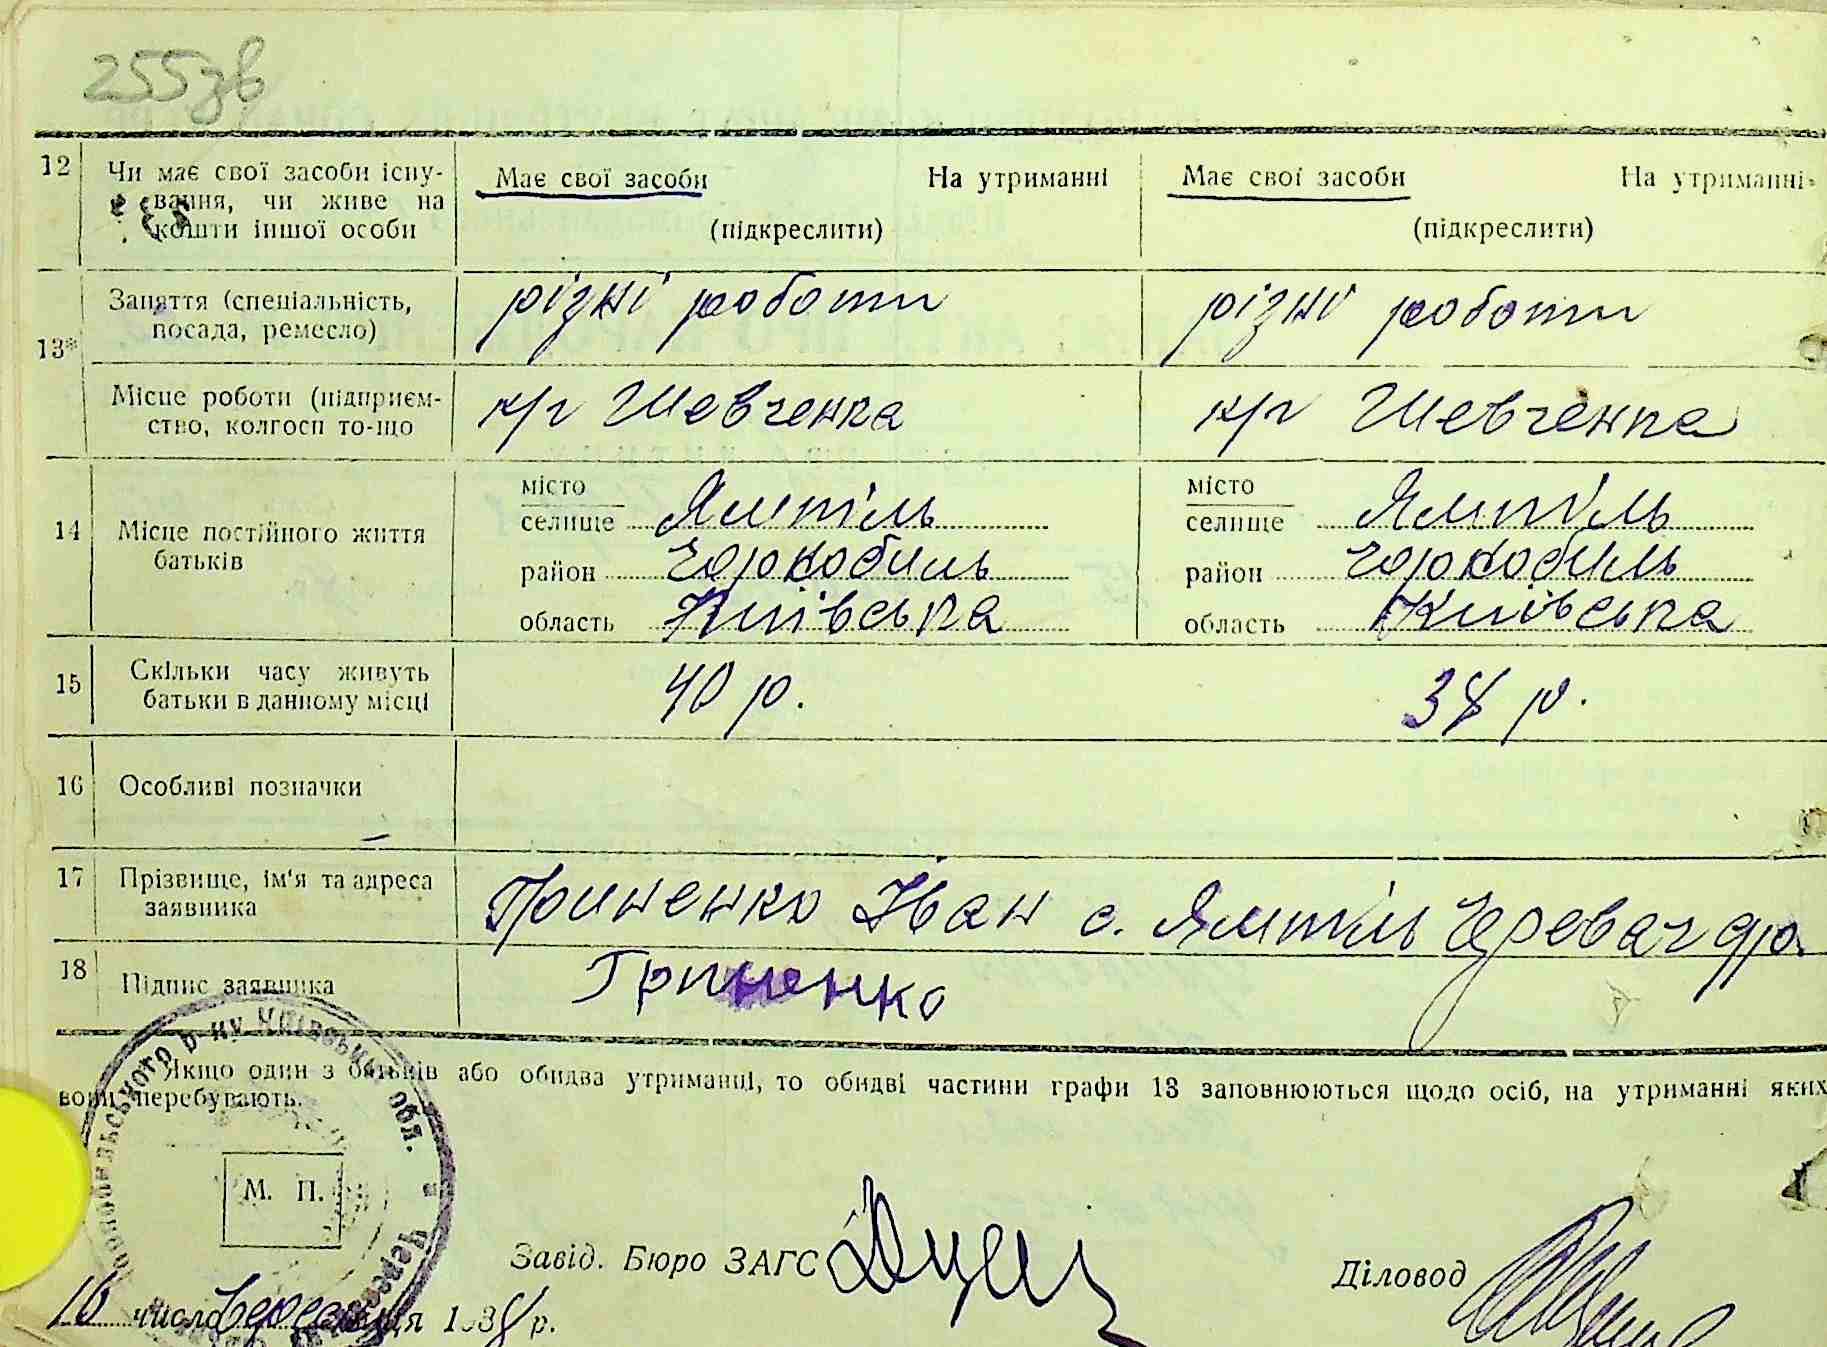 255зв
12 Чи має свої засоби існу- Має свої засоби На утриманні Має свої засоби На утриманні
вання, чи живе на
кошти іншої особи (підкреслити) (підкреслити)
13* Заняття (спеціальність, різні роботи різні роботи
посада, ремесло)
Місце роботи (підприєм- к/г Шевченка к/г Шевченка
ство, колгосп то-що
14 Місце постійного життя батьків
місто місто
селище Ямпіль селище Ямпіль
район Чорнобиль район Чорнобиль
область Київська область Київська
15 Скільки часу живуть 40 р. 38 р.
батьки в данному місці
16 Особливі позначки
17 Прізвище, ім'я та адреса Гриненко Іван с. Ямпіль Черевач
заявника
18 Підпис заявника Гриненко
Якщо один з батьків або обидва утриманці, то обидві частини графи 13 заповнюються щодо осіб, на утриманні яких
вони перебувають.
Чорнобильського р-ну Київської обл.
М. П.
Завід. Бюро ЗАГС Діловод
16 число березня 1938 р.